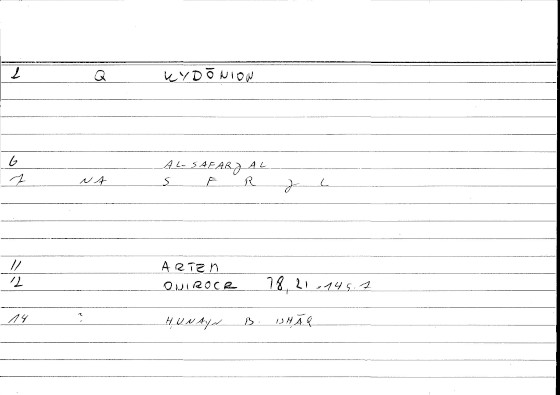 1 Q KYDŌNION
6 AL-SAFARJAL
7 NA S F R J L
11 ARTEM
12 ONIROCR 78, 21 - 145.7
14 : HUNAYN B. ISHĀQ